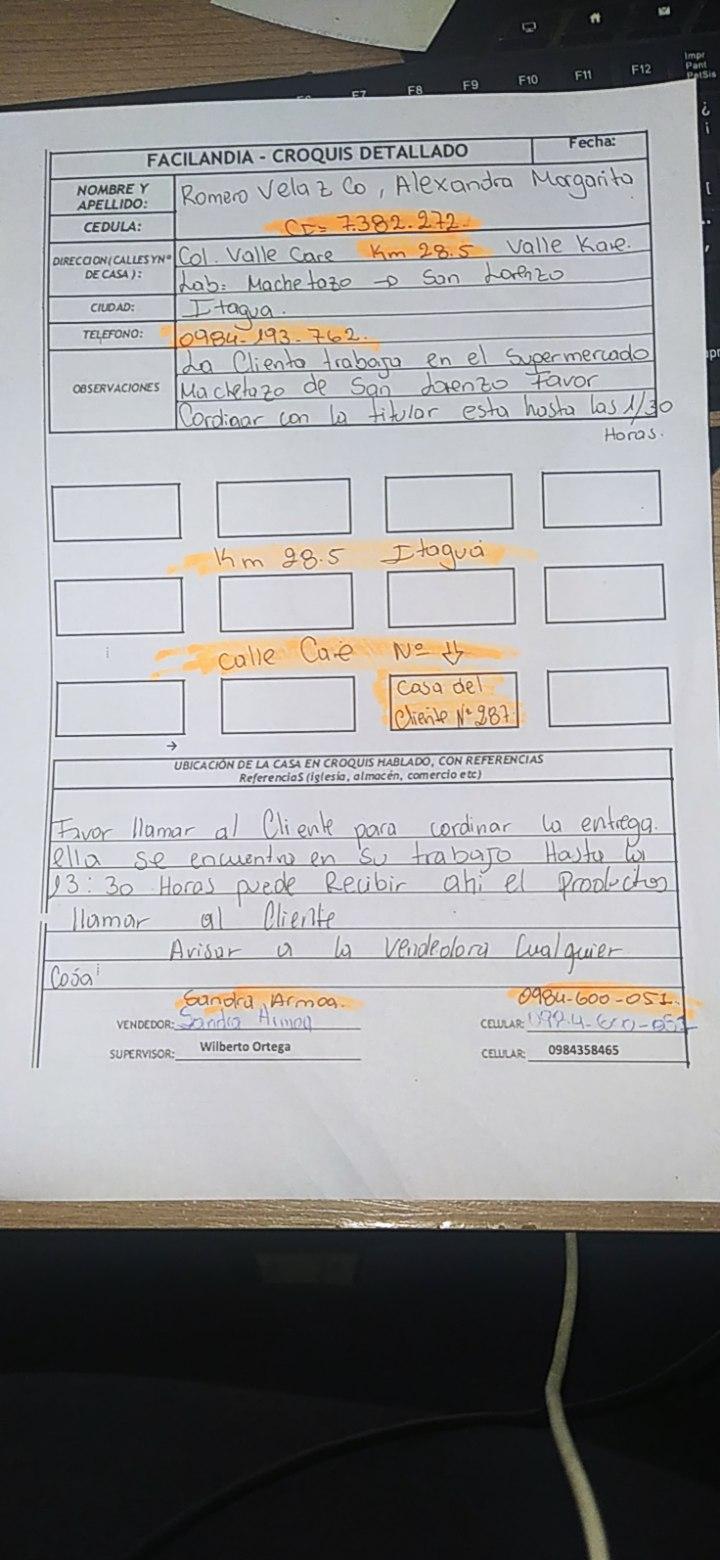 Impr
Pant
PetSis
F7 F8 F9 F10 F11 F12
FACILANDIA - CROQUIS DETALLADO Fecha:
NOMBRE Y APELLIDO: Romero Velaz Co, Alexandra Margarita
CEDULA: CI= 7.382.272.
DIRECCION (CALLES Y Nº DE CASA): Col. Valle Care Km 28.5 Valle Kare.
Lab: Machetazo → San Lorenzo
CIUDAD: Itagua.
TELEFONO: 0984-193-762.
OBSERVACIONES La Cliente trabaja en el Supermercado
Machetazo de San Lorenzo Favor
Cordinar con la titular esta hasta las 1/30
Horas.
Km 28.5 Itagua
calle Cae Nº ⇓
Casa del
Cliente Nº 287
→
UBICACIÓN DE LA CASA EN CROQUIS HABLADO, CON REFERENCIAS
ReferenciaS (iglesia, almacén, comercio etc)
Favor llamar al Cliente para cordinar la entrega.
ella se encuentra en su trabajo Hasta las
13:30 Horas puede Recibir ahi el Productos
llamar al Cliente
Avisar a la Vendedora Cualquier
Cosa
Sandra Armoa. 0984-600-051.
VENDEDOR: Sandra Armoa CELULAR:
SUPERVISOR: Wilberto Ortega CELULAR: 0984358465